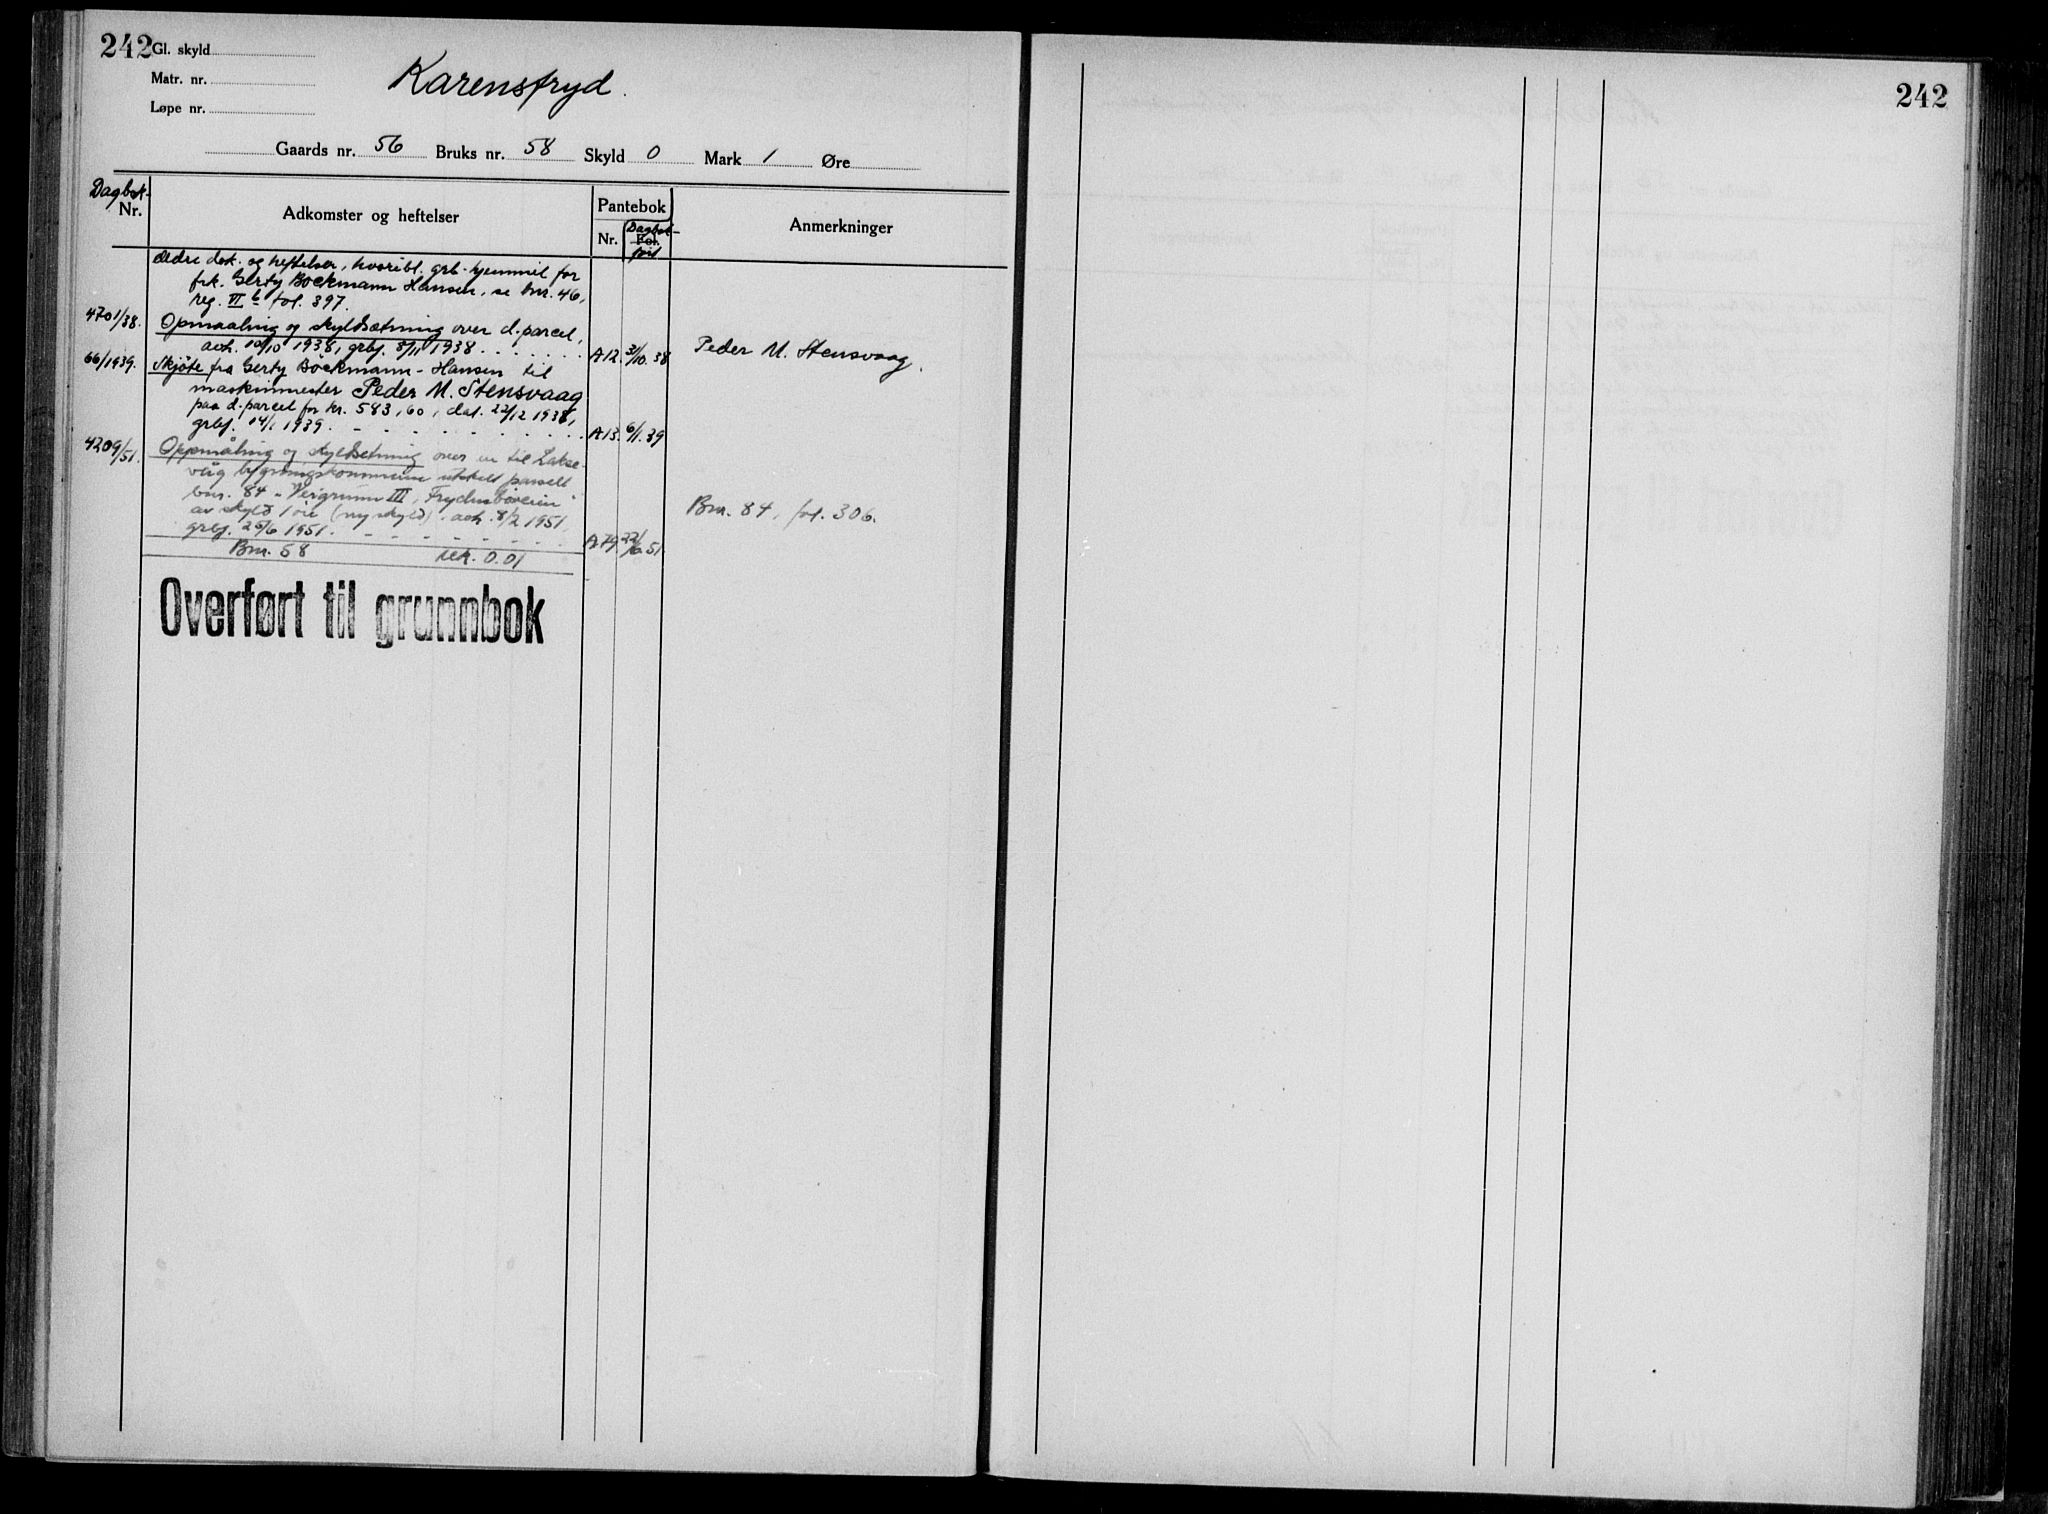 242 Gl. skyld
Matr. nr.
Løpe nr.
Karensfryd.
Gaards nr. 56 Bruks nr. 58 Skyld 0 Mark 1 Øre
Dagbok-
Nr.
Adkomster og heftelser
Pantebok
Nr.
Dagbok-
Fol.
ført
Anmerkninger
Ældre dok. og heftelser, hvoribl. grb.-hjemmel for
frk. Gerty Böckmann Hansen, se bnr. 46,
reg. VI b fol. 397.
4701/38. Opmaaling og skyldsetning over d. parcel,
avh. 10/10 1938, grbj. 8/11 1938. A12. 31/10. 38 Peder M. Stensvaag.
66/1939. Skjøte fra Gerty Böckmann-Hansen til
maskinmester Peder M. Stensvaag
paa d. parcel for kr. 583,60, dat. 22/12 1938,
grbj. 14/1 1939. A13. 6/1. 39
4209/51. Oppmåling og skyldsetning over en til Lakse-
våg bygningskommune utskilt parsell
bnr. 84 "Veigrunn III, Frydenbøveien"
av skyld 1 øre (ny skyld). avh. 8/2 1951, Bnr. 84, fol. 306.
grbj. 25/6 1951. A79. 22/6. 51
Bnr. 58 sk. 0.01
Overført til grunnbok
242